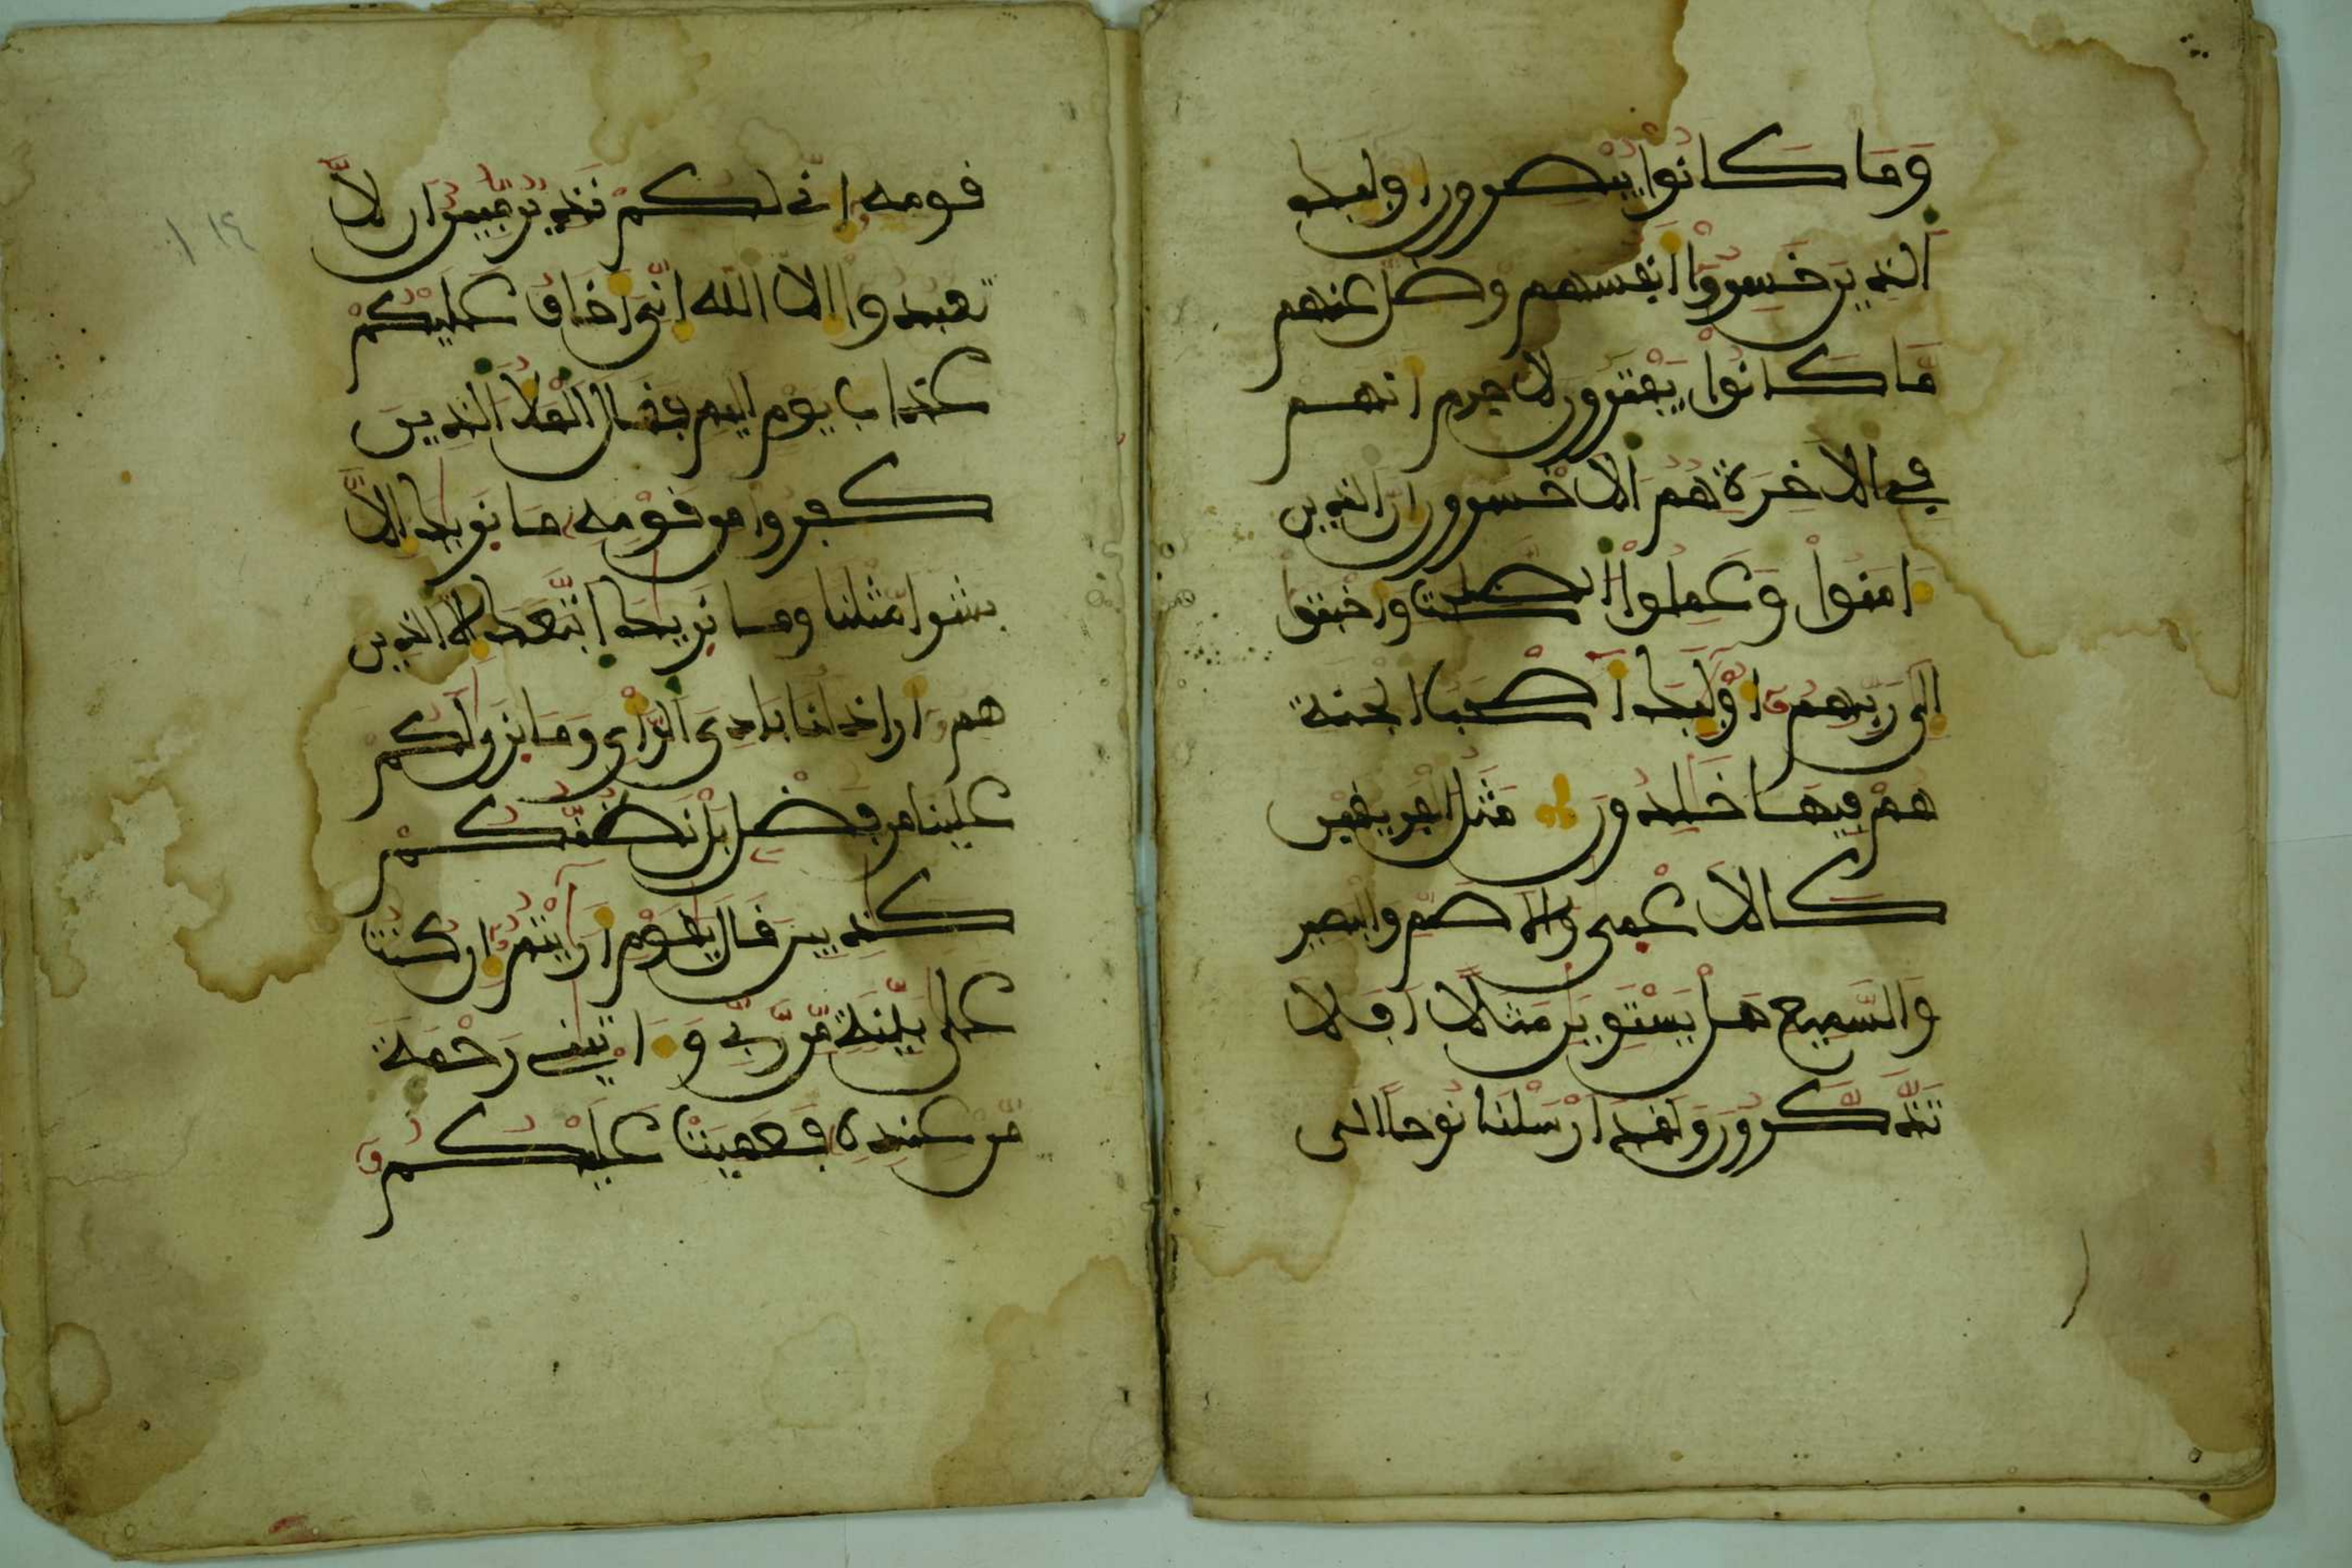 وَمَا كَانُوا يُبْصِرُونَ أولٰئك
الذِينَ خَسِرُوٓا أنفسهم وضل عنهم
مَّا كَانُوا يَفْتَرُونَ لا جرم أنهم
في الاخِرَةِ هُمُ الَاخْسرون إن الذين
ءَامَنُوا وَعَمِلُوا الصَّٰلحٰت وأخبتوا
إلَى رَبِّهِمُۥ أُوْلَٰئك أَصْحَٰب الجنة
هُمْ فِيهَا خَٰلِدُونَ مَثَلُ الفريقين
كَالَاعْمى والَاصَمِّ والبصير
وَالسَّمِيعِ هَلْ يَسْتَوِيَٰنِ مَثَلًا أَفَلَا
تَذَّكَّرُونَ وَلَقَدَ ارْسَلْنَا نُوحًا الى
قومه إنّي لكُمْ نَذِيرٌ مُّبِينٌ أن لَّا
تعبدوا إلا الله إنِّيَ أخاف عَلَيْكُمْ
عذاب يوم اليم فقال الْمَلَأُ الذين
كفروا من قَوْمِه ما نريٰك إلَّا
بشرا مِّثلنا وما نريٰك اتَّبَعَك إلا الذين
همُۥ أراذلنا بَادِيَ الرَّأي وَمَا نرىٰ لكُمْ
علينا من فَضْلٍ بَلْ نَظُنُّكُمْ
كٰذبين قَال يٰقَوْمِ أَرَٰيْتُمُۥ إن كُنتُ
على بَيِّنَةٍ مِّن رَّبِّي وَءَاتٰيني رَحْمَةً
مِّنْ عِندِهِ فَعَمِيَتْ عَلَيْكُمُۥ
١١٤